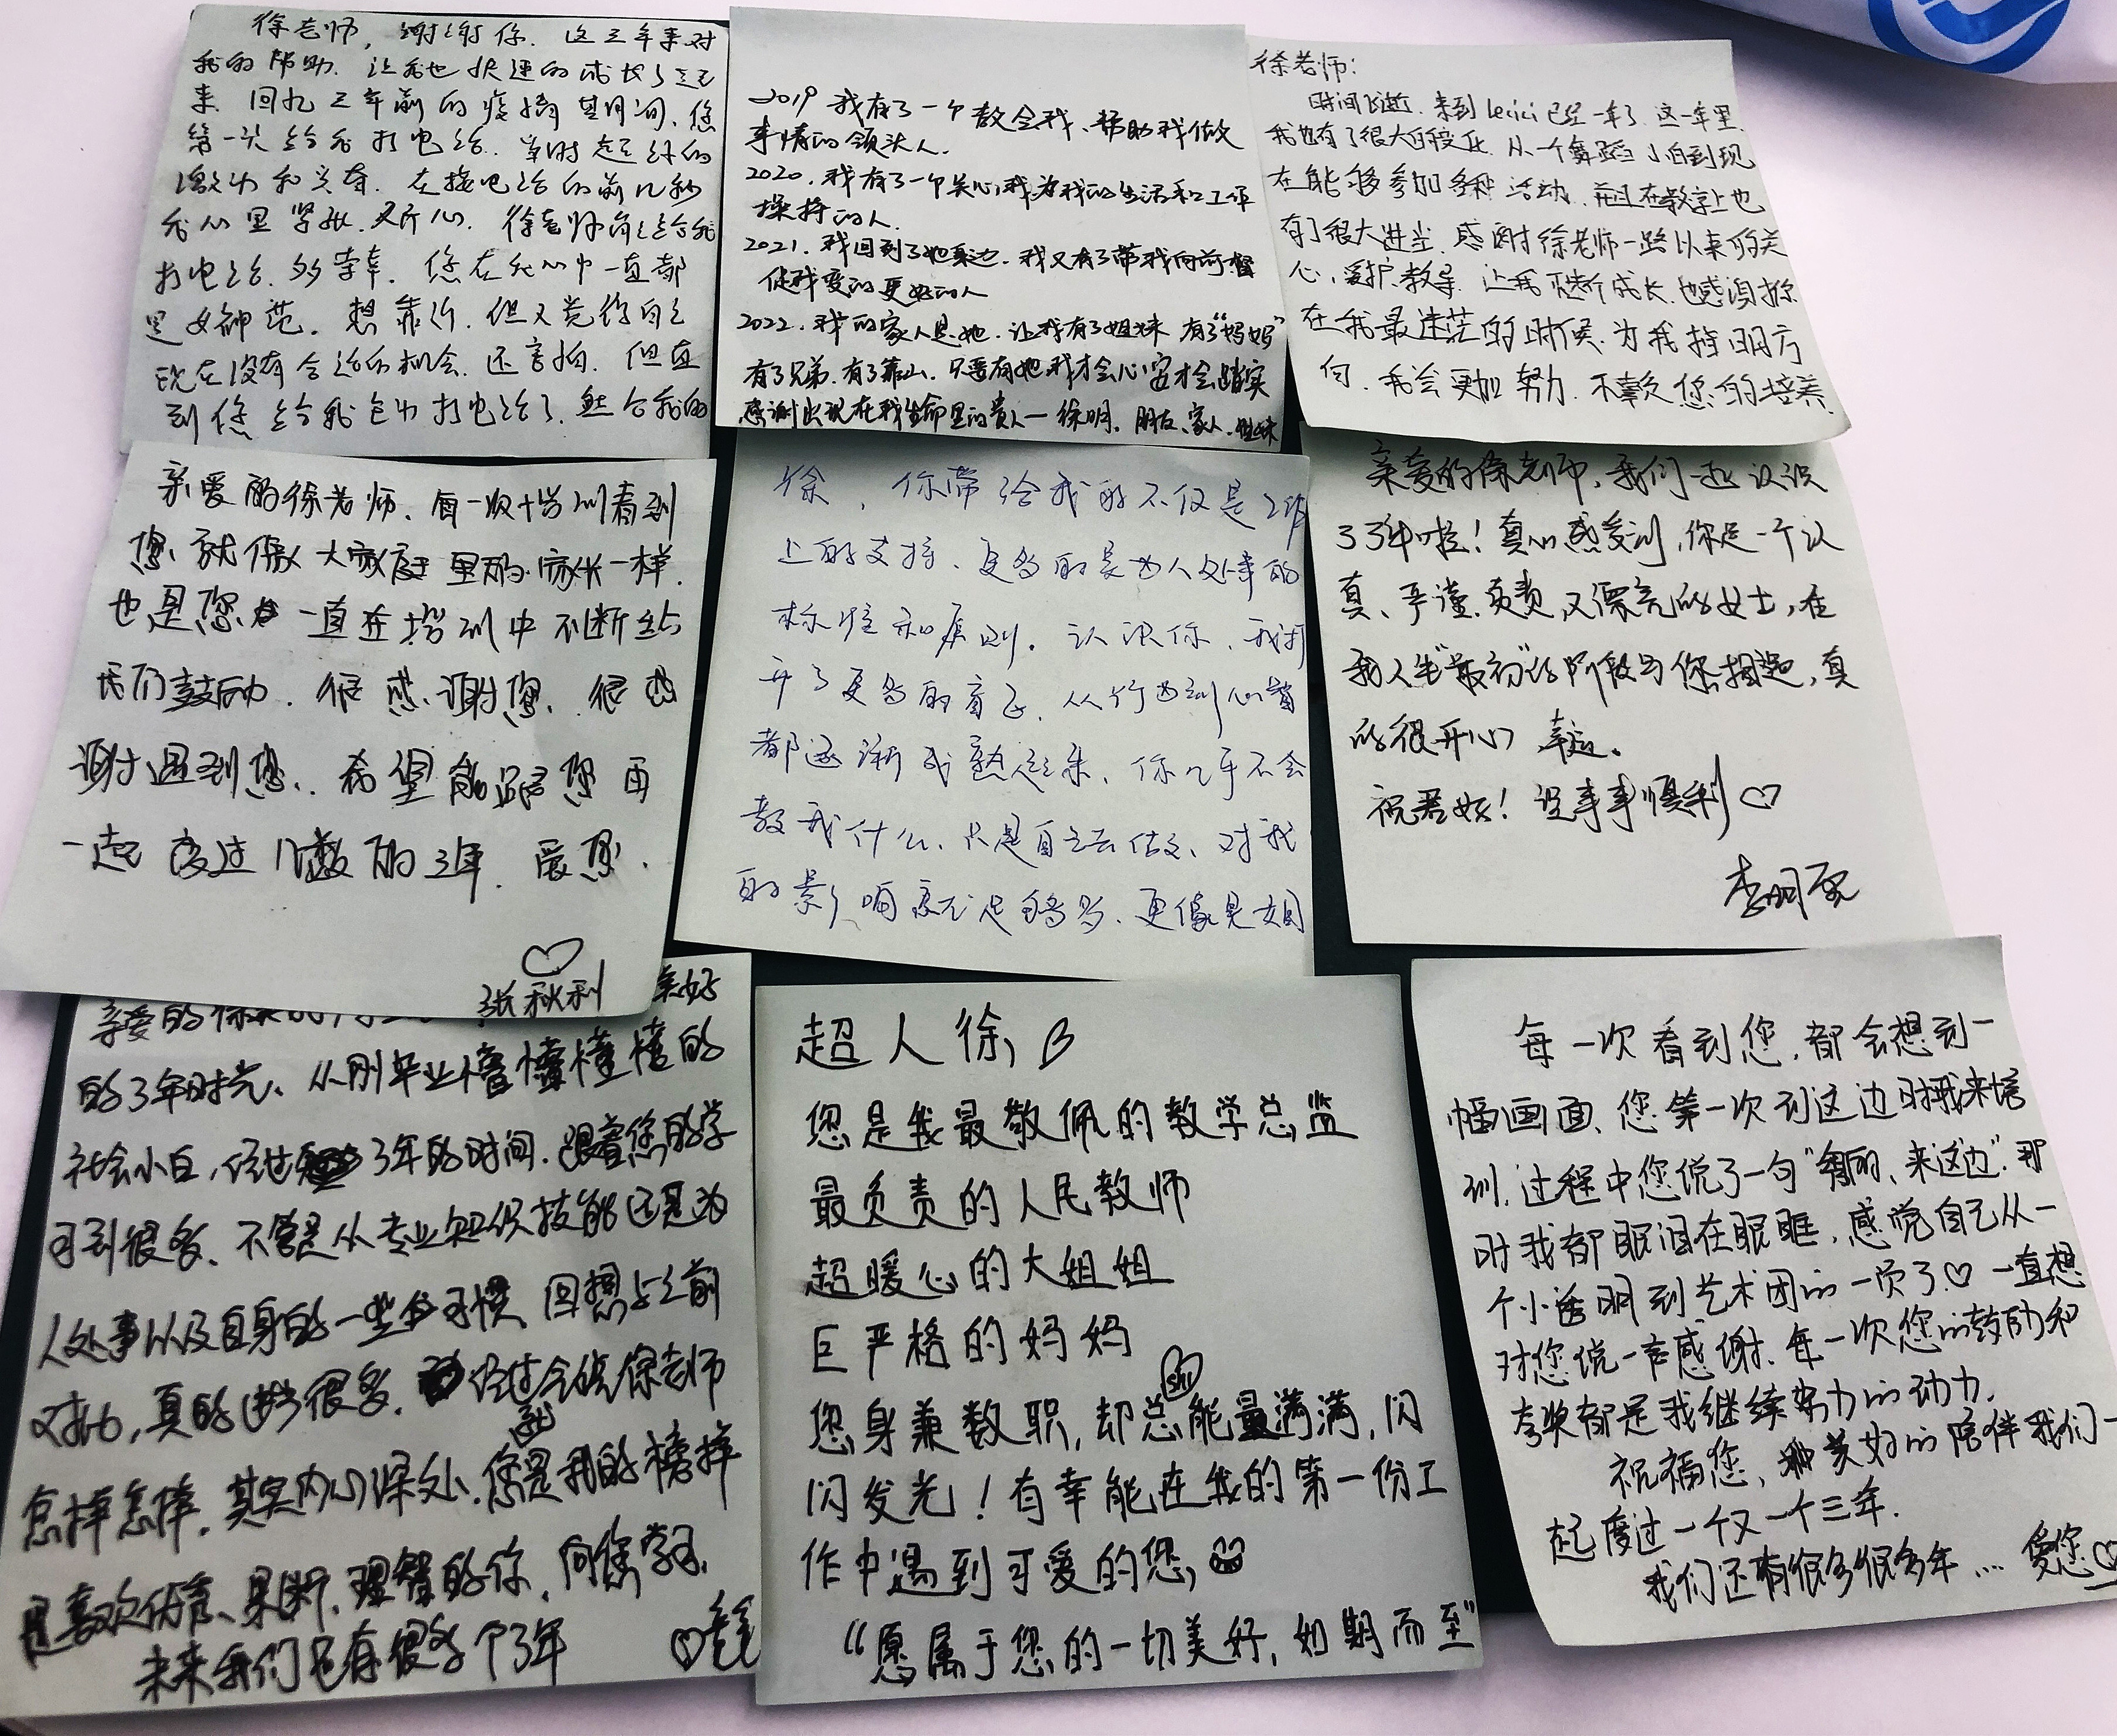 徐老师，谢谢你．这三年来对
我的帮助．让我也快速的成长了起
来．回忆三年前的疫情期间，您
第一次给我打电话．当时超级的
激动和兴奋．在接电话的前几秒
我心里紧张又开心．徐老师亲自给我
打电话．多幸幸．您在我心中一直都
是女神范．想靠近．但又觉得自己
现在没有合适的机会．还害怕．但直
到您给我主动打电话了．
2019 我有了一个教会我、帮助我做
事情的领头人．
2020．我有了一个关心我为我的生活和工作
操持的人．
2021．我回到了她身边．我又有了带我向前督
促我变的更好的人
2022．我的家人是她．让我有了姐妹 有了“妈妈”
有了兄弟．有了靠山．只要有她我才会心安才会踏实
感谢出现在我生命里的贵人—徐明．朋友、家人、姐妹
徐老师：
时间飞逝．来到lecici已经一年了．这一年里．
我也有了很大的变化．从一个舞蹈小白到现
在能够参加各种活动．并且在教学上也
有了很大进步．感谢徐老师一路以来的关
心，爱护，教导．让我不断成长．也感谢您
在我最迷茫的时候．为我指明方
向．我会更加努力．不辜负您的培养．
亲爱的徐老师．每一次培训看到
您．就像大家庭里的家长一样．
也是您 一直在培训中不断给
我们鼓励．很感谢您．很感
谢遇到您．希望能跟您再
一起度过几数的3年．爱您．
♡
张秋利
徐，你带给我的不仅是工作
上的支持、更多的是为人处事的
标准和原则。认识你，我打
开了更多的窗子．从行为到心智
都逐渐成熟起来．你几乎不会
教我什么．只是自己去做、对我
的影响就足够多．更像是姐
亲爱的徐老师，我们一起认识
了3年啦！真的感受到，你是一个认
真、严谨、负责，又漂亮的女士，在
我人生“最初”的阶段与您相遇，真
的很开心 幸运。
祝君好！ 事事顺利♡
亲爱的徐 美好
的3年时光、从刚毕业懵懵懂懂的
社会小白，经过 3年的时间．跟着您的学
习到很多．不管是从专业知识技能还是为
人处事以及自身的一些 习惯．回想与之前
对比，真的进步很多． 经过会说徐老师
怎样怎样．其实内心深处．您就是我的榜样
是喜欢 、果断、理智的你，向您学习．
未来我们还有很多个3年 ♡
超人徐
您是我最敬佩的教学总监
最负责的人民教师
超暖心的大姐姐
巨严格的妈妈
您身兼数职，却总shi能量满满，闪
闪发光！有幸能在我的第一份工
作中遇到可爱的您
“愿属于您的一切美好，如期而至”
每一次看到您，都会想到一
幅画面、您第一次到这边时我来培
训．过程中您说了一句“ ，来这边”．那
时我都眼泪在眼眶，感觉自己从一
个小透明到艺术团的一员了♡ 一直想
对您说一声感谢．每一次您的鼓励和
夸奖都是我继续努力的动力．
祝福您， 美好的陪伴我们一
起度过一个又一个三年．
我们还有很多很多年... 爱您♡